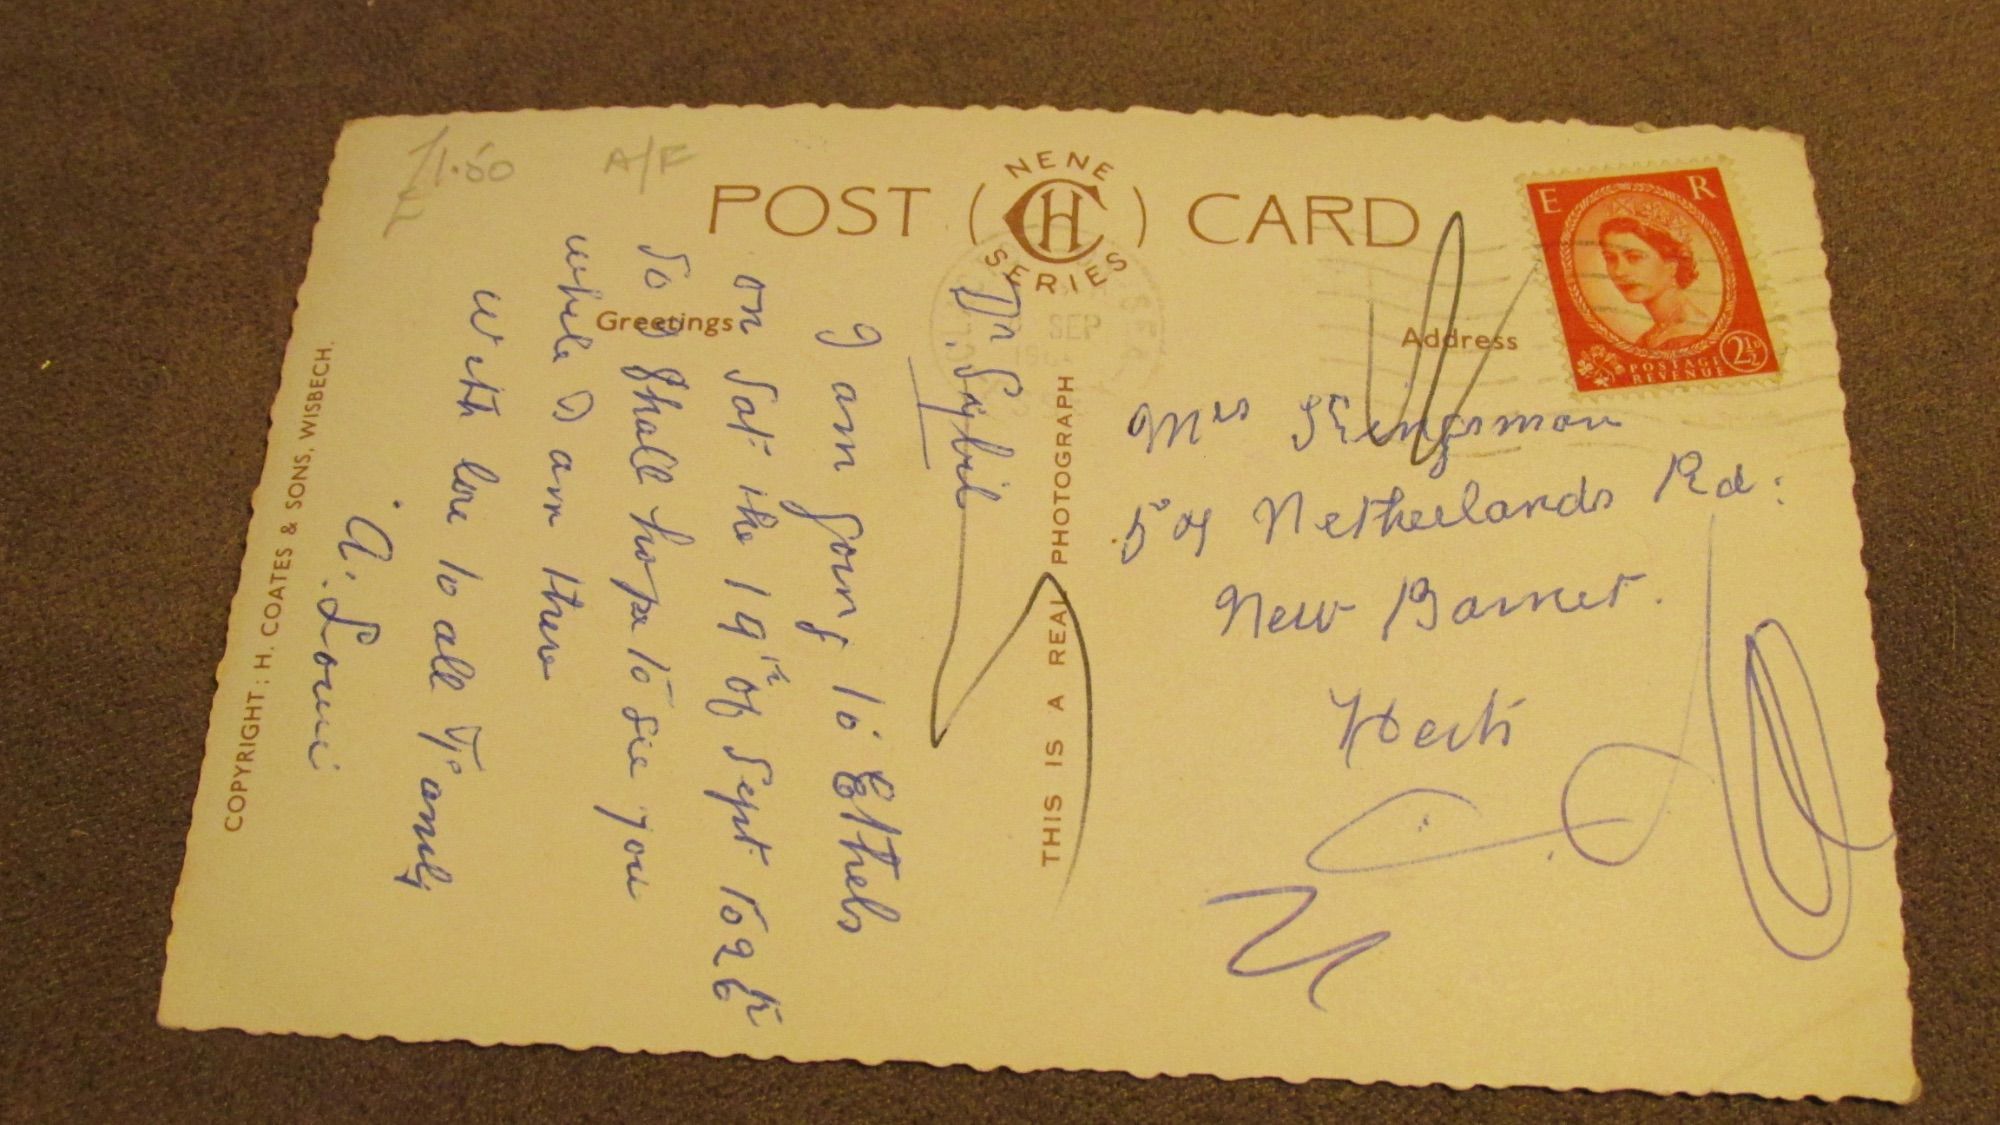 £1.50
A/F
POST ( NENE CH SERIES ) CARD
Greetings
Address
E R
POSTAGE REVENUE 2½D
SEP
Dr. Sybil
I am going to Ethels
on Sat. the 19th of Sept to 26th
So I Shall hope to see you
while I am there
With love to all Family
A. Louie
Mrs Kingsman
Netherlands Rd:
New Barnet.
Herts
THIS IS A REAL PHOTOGRAPH
COPYRIGHT: H. COATES & SONS, WISBECH.